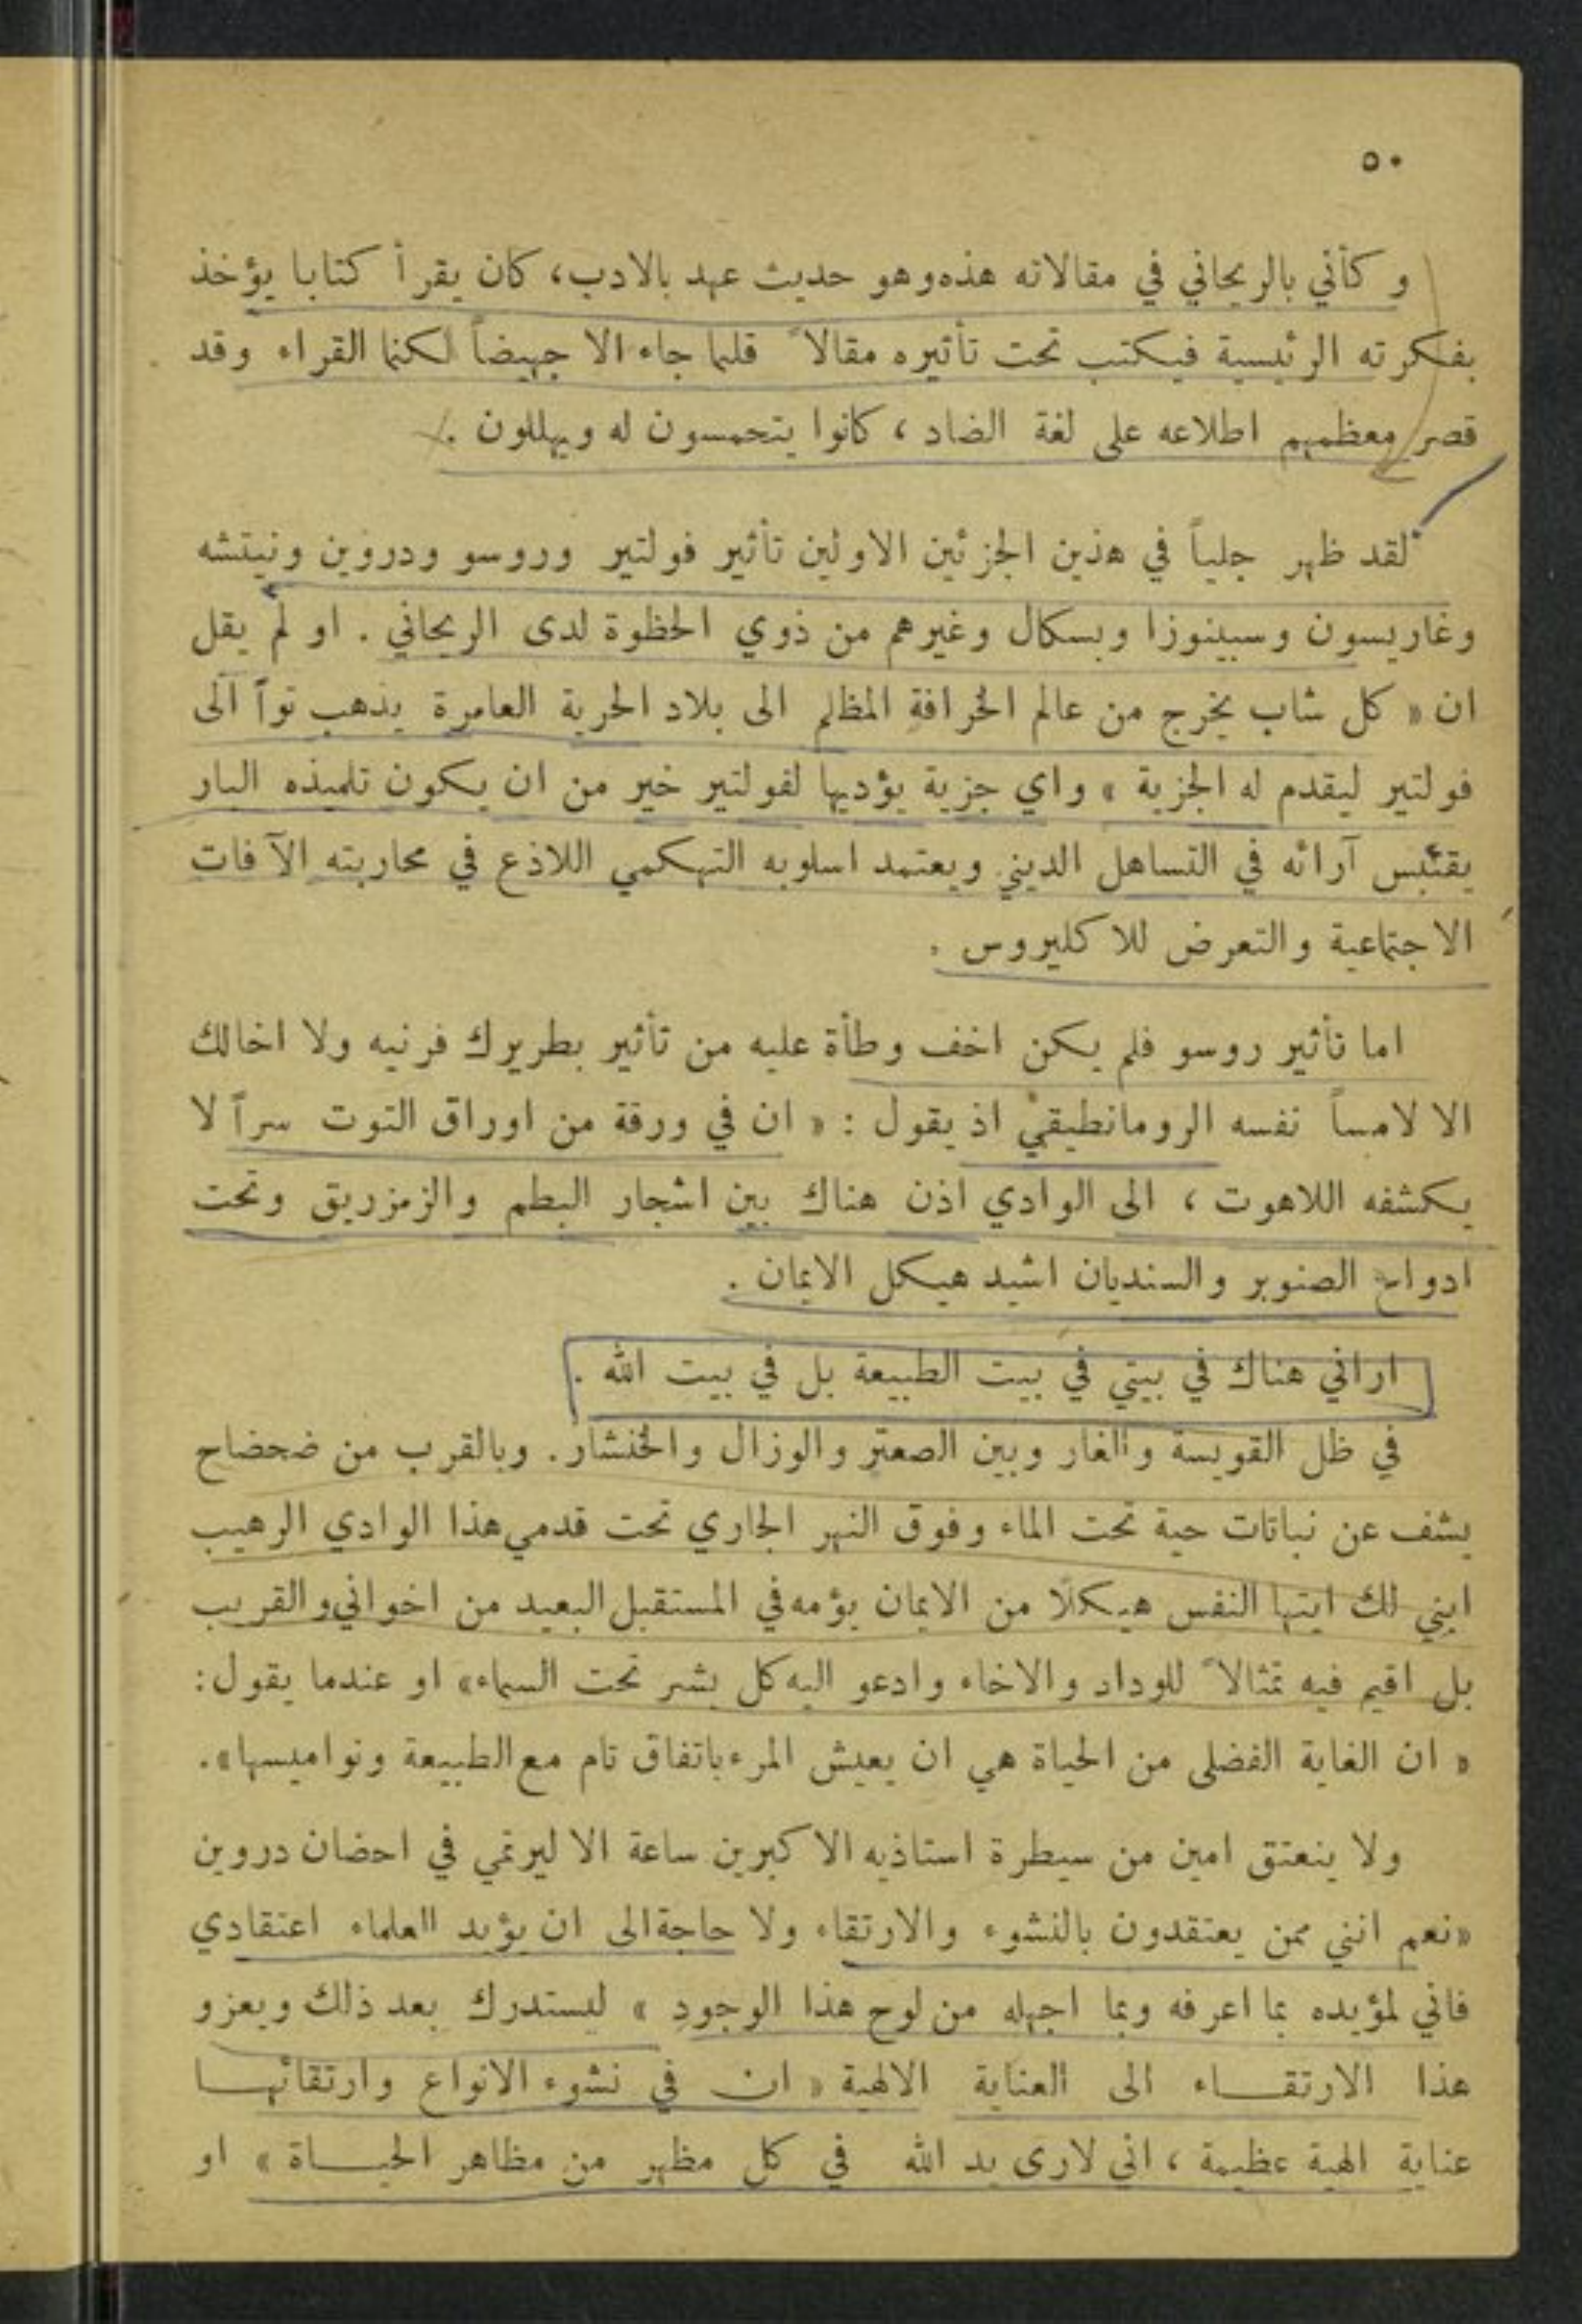 ٥٠
وكأني بالريحاني في مقالاته هذه وهو حديث عهد بالادب، كان يقرأ كتابا يؤخذ
بفكرته الرئيسية فيكتب تحت تأثيره مقالاً قلما جاء الا جهيضاً لكنما القراء وقد
قصر معظمهم اطلاعه على لغة الضاد ، كانوا يتحمسون له ويهللون .
لقد ظهر جلياً في هذين الجزئين الاولين تأثير فولتير وروسو ودروين ونيتشه
وغاريسون وسبينوزا وبسكال وغيرهم من ذوي الحظوة لدى الريحاني . او لم يقل
ان « كل شاب يخرج من عالم الخرافة المظلم الى بلاد الحرية العامرة يذهب تواً الى
فولتير ليقدم له الجزية » واي جزية يؤديها لفولتير خير من ان يكون تلميذه البار
يقتبس آرائه في التساهل الديني ويعتمد اسلوبه التهكمي اللاذع في محاربته الآفات
الاجتماعية والتعرض للاكليروس .
اما تأثير روسو فلم يكن اخف وطأة عليه من تأثير بطريرك فرنيه ولا اخالك
الا لامساً نفسه الرومانطيقي اذ يقول : « ان في ورقة من اوراق التوت سراً لا
يكشفه اللاهوت ، الى الوادي اذن هناك بين اشجار البطم والزمزريق وتحت
ادواح الصنوبر والسنديان اشيد هيكل الايمان .
اراني هناك في بيتي في بيت الطبيعة بل في بيت الله .
في ظل القويسة والغار وبين الصعتر والوزال والخنشار . وبالقرب من ضحضاح
يشف عن نباتات حية تحت الماء وفوق النهر الجاري تحت قدمي هذا الوادي الرهيب
ابني لك ايتها النفس هيكلا من الايمان يؤمه في المستقبل البعيد من اخواني والقريب
بل اقيم فيه تمثالاً للوداد والاخاء وادعو اليه كل بشر تحت السماء» او عندما يقول:
« ان الغاية الفضلى من الحياة هي ان يعيش المرء باتفاق تام مع الطبيعة ونواميسها».
ولا ينعتق امين من سيطرة استاذيه الاكبرين ساعة الا ليرتمي في احضان دروين
«نعم انني ممن يعتقدون بالنشوء والارتقاء ولا حاجة الى ان يؤيد العلماء اعتقادي
فاني لمؤيده بما اعرفه وبما اجهله من لوح هذا الوجود » ليستدرك بعد ذلك ويعزو
هذا الارتقـــاء الى العناية الالهية « ان في نشوء الانواع وارتقائهـــا
عناية الهية عظيمة ، اني لارى يد الله في كل مظهر من مظاهر الحيـــاة » او